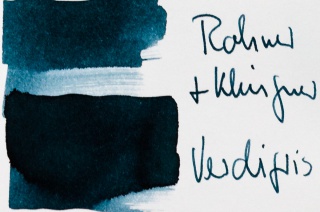 Rohrer
+ Klingner
Verdigris